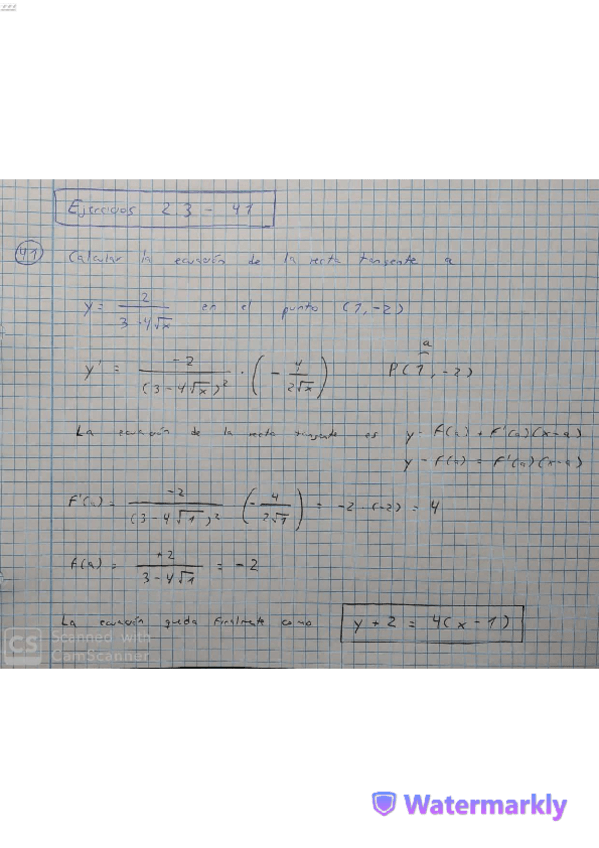 Ejercicios 2.3 - 41
41 Calcular la ecuación de la recta tangente a
y = 2 / (3 - 4√x) en el punto (1, -2)
a
y' = -2 / (3 - 4√x)² · (- 4 / 2√x) P(1, -2)
La ecuación de la recta tangente es y = f(a) + f'(a)(x-a)
y - f(a) = f'(a)(x-a)
f'(a) = -2 / (3 - 4√1)² (- 4 / 2√1) = -2 · (-2) = 4
f(a) = +2 / (3 - 4√1) = -2
La ecuación queda finalmente como y + 2 = 4(x - 1)
CS Scanned with
CamScanner
Watermarkly